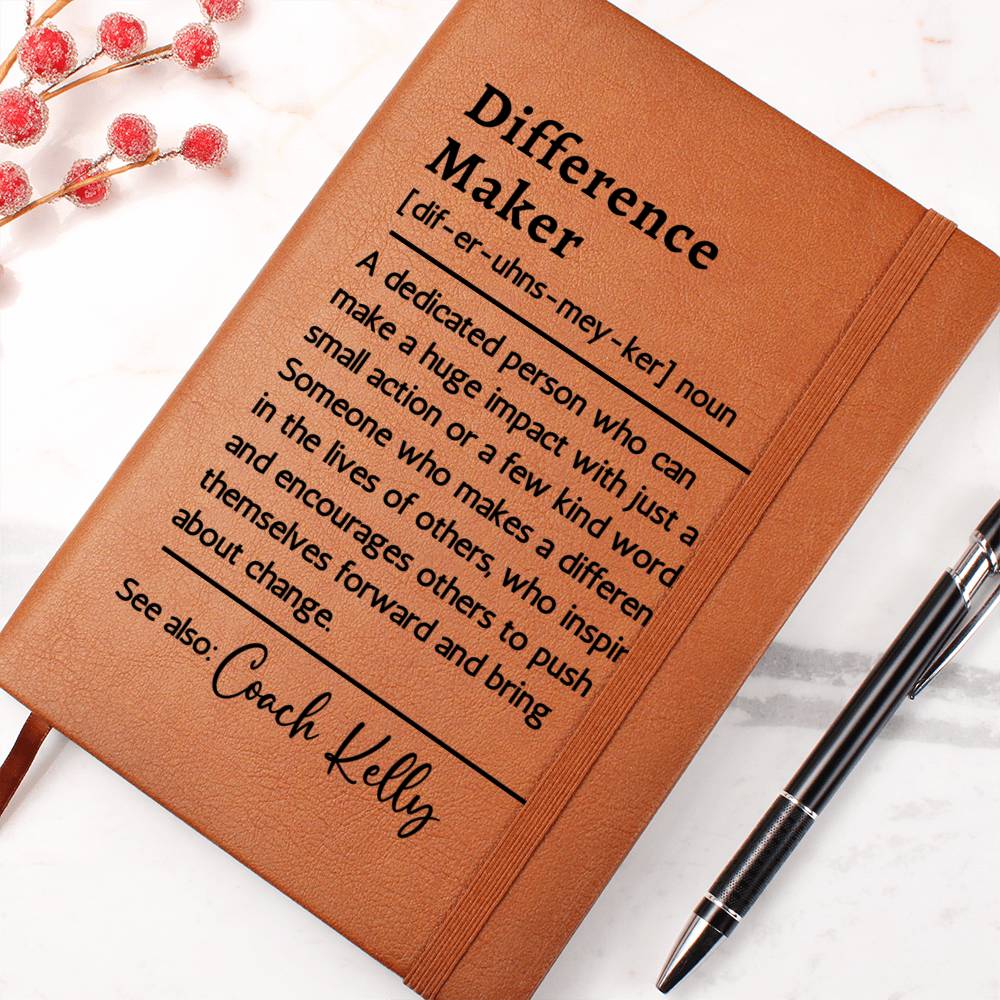 Difference
Maker
[dif-er-uhns-mey-ker] noun
A dedicated person who can
make a huge impact with just a
small action or a few kind word
Someone who makes a differen
in the lives of others, who inspir
and encourages others to push
themselves forward and bring
about change.
See also: Coach Kelly